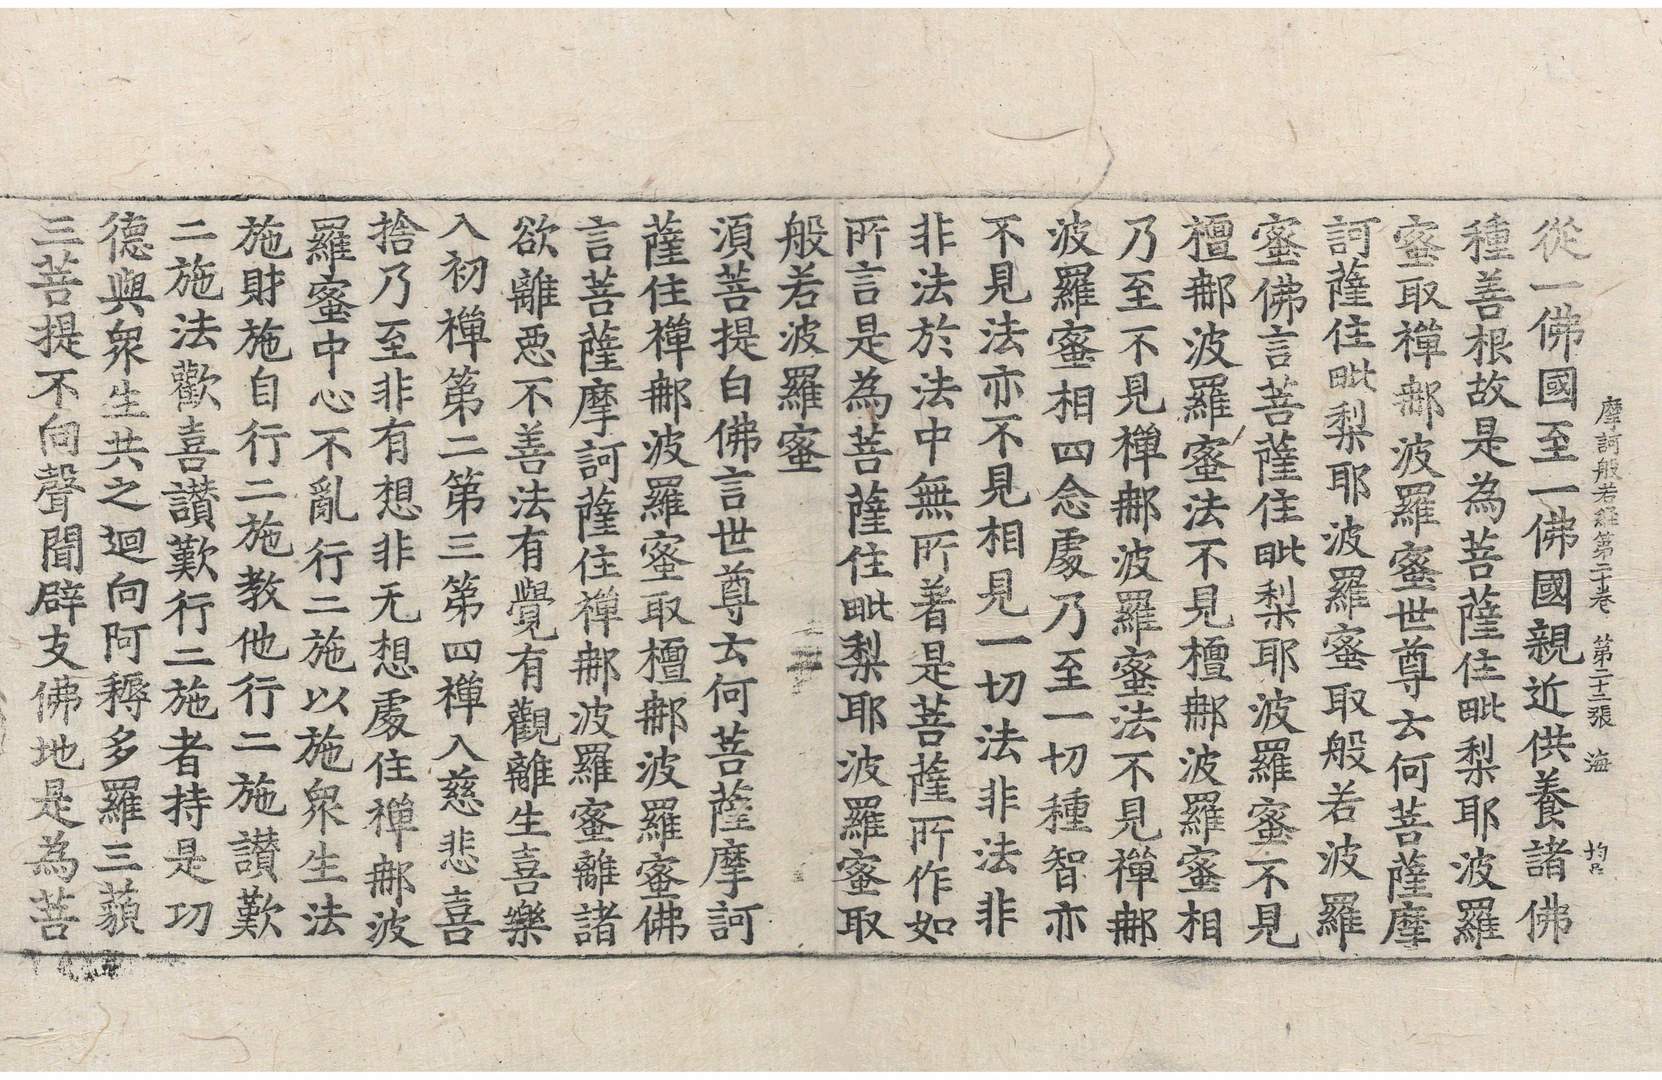 摩訶般若經第二十卷　第二十二張　海
均
從一佛國至一佛國親近供養諸佛
種善根故是為菩薩住毗梨耶波羅
蜜取禪䣯波羅蜜世尊云何菩薩摩
訶薩住毗梨耶波羅蜜取般若波羅
蜜佛言菩薩住毗梨耶波羅蜜不見
檀䣯波羅蜜法不見檀䣯波羅蜜相
乃至不見禪䣯波羅蜜法不見禪䣯
波羅蜜相四念處乃至一切種智亦
不見法亦不見相見一切法非法非
非法於法中無所著是菩薩所作如
所言是為菩薩住毗梨耶波羅蜜取
般若波羅蜜
須菩提白佛言世尊云何菩薩摩訶
薩住禪䣯波羅蜜取檀䣯波羅蜜佛
言菩薩摩訶薩住禪䣯波羅蜜離諸
欲離惡不善法有覺有觀離生喜樂
入初禪第二第三第四禪入慈悲喜
捨乃至非有想非无想處住禪䣯波
羅蜜中心不亂行二施以施衆生法
施財施自行二施教他行二施讃歎
二施法歡喜讃歎行二施者持是功
德與衆生共之迴向阿耨多羅三藐
三菩提不向聲聞辟支佛地是為菩